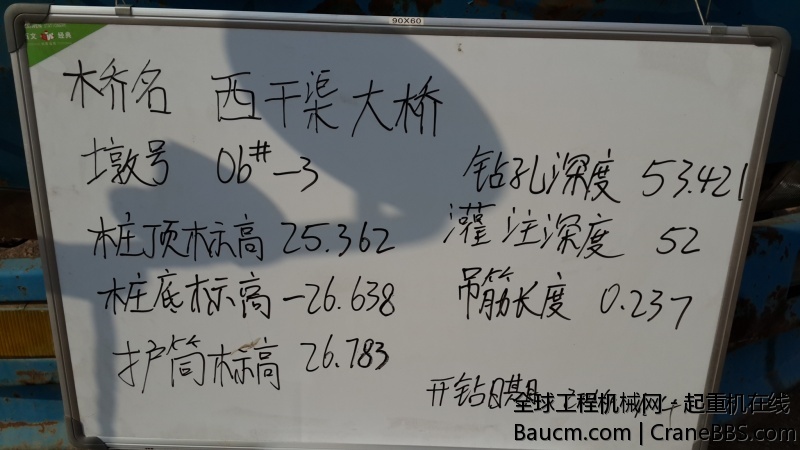 90X60
桥名 西干渠大桥
墩号 06#-3
钻孔深度 53.421
桩顶标高 25.362
灌注深度 52
桩底标高 -26.638
吊筋长度 0.237
护筒标高 26.783
开钻日期
全球工程机械网·起重机在线
Baucm.com | CraneBBS.com